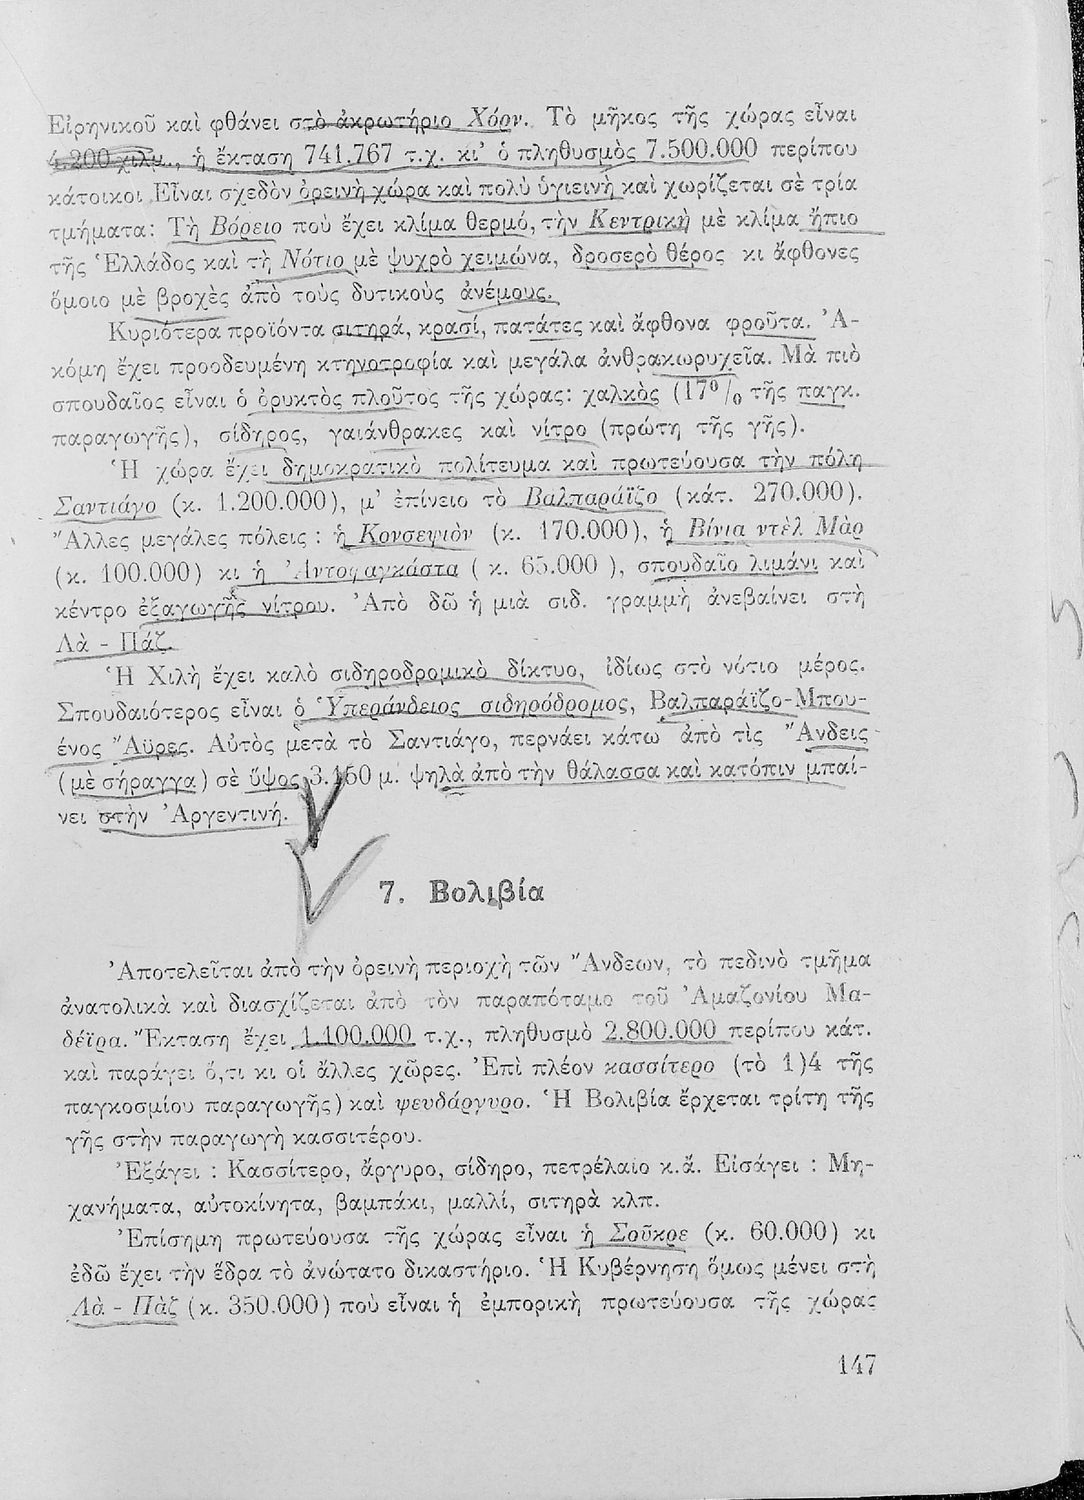 Εἰρηνικοῦ καὶ φθάνει στὸ ἀκρωτήριο Χόρν. Τὸ μῆκος τῆς χώρας εἶναι
4.200 χιλμ., ἡ ἔκταση 741.767 τ.χ. κι’ ὁ πληθυσμὸς 7.500.000 περίπου
κάτοικοι. Εἶναι σχεδὸν ὀρεινὴ χώρα καὶ πολὺ ὑγιεινὴ καὶ χωρίζεται σὲ τρία
τμήματα: Τὴ Βόρειο ποὺ ἔχει κλίμα θερμό, τὴν Κεντρικὴ μὲ κλίμα ἤπιο
τῆς Ἑλλάδος καὶ τὴ Νότιο μὲ ψυχρὸ χειμώνα, δροσερὸ θέρος κι ἄφθονες
ὅμοιο μὲ βροχὲς ἀπὸ τοὺς δυτικοὺς ἀνέμους.
Κυριότερα προϊόντα σιτηρά, κρασί, πατάτες καὶ ἄφθονα φροῦτα. Ἀ-
κόμη ἔχει προοδευμένη κτηνοτροφία καὶ μεγάλα ἀνθρακωρυχεῖα. Μὰ πιὸ
σπουδαῖος εἶναι ὁ ὀρυκτὸς πλοῦτος τῆς χώρας: χαλκὸς (17% τῆς παγκ.
παραγωγῆς), σίδηρος, γαιάνθρακες καὶ νίτρο (πρώτη τῆς γῆς).
Ἡ χώρα ἔχει δημοκρατικὸ πολίτευμα καὶ πρωτεύουσα τὴν πόλη
Σαντιάγο (κ. 1.200.000), μ’ ἐπίνειο τὸ Βαλπαράϊζο (κάτ. 270.000).
Ἄλλες μεγάλες πόλεις : ἡ Κονσεψιὸν (κ. 170.000), ἡ Βίνια ντὲλ Μὰρ
(κ. 100.000) κι ἡ Ἀντοφαγκάστα ( κ. 65.000 ), σπουδαῖο λιμάνι καὶ
κέντρο ἐξαγωγῆς νίτρου. Ἀπὸ δῶ ἡ μιὰ σιδ. γραμμὴ ἀνεβαίνει στὴ
Λὰ - Πάζ.
Ἡ Χιλὴ ἔχει καλὸ σιδηροδρομικὸ δίκτυο, ἰδίως στὸ νότιο μέρος.
Σπουδαιότερος εἶναι ὁ Ὑπεράνδειος σιδηρόδρομος, Βαλπαράϊζο-Μπου-
ένος Ἄϋρες. Αὐτὸς μετὰ τὸ Σαντιάγο, περνάει κάτω ἀπὸ τὶς Ἄνδεις
(μὲ σήραγγα) σὲ ὕψος 3.150 μ. ψηλὰ ἀπὸ τὴν θάλασσα καὶ κατόπιν μπαί-
νει στὴν Ἀργεντινή.
7. Βολιβία
Ἀποτελεῖται ἀπὸ τὴν ὀρεινὴ περιοχὴ τῶν Ἄνδεων, τὸ πεδινὸ τμῆμα
ἀνατολικὰ καὶ διασχίζεται ἀπὸ τὸν παραπόταμο τοῦ Ἀμαζονίου Μα-
δέϊρα. Ἔκταση ἔχει 1.100.000 τ.χ., πληθυσμὸ 2.800.000 περίπου κάτ.
καὶ παράγει ὅ,τι κι οἱ ἄλλες χῶρες. Ἐπὶ πλέον κασσίτερο (τὸ 1)4 τῆς
παγκοσμίου παραγωγῆς) καὶ ψευδάργυρο. Ἡ Βολιβία ἔρχεται τρίτη τῆς
γῆς στὴν παραγωγὴ κασσιτέρου.
Ἐξάγει : Κασσίτερο, ἄργυρο, σίδηρο, πετρέλαιο κ.ἄ. Εἰσάγει : Μη-
χανήματα, αὐτοκίνητα, βαμπάκι, μαλλί, σιτηρὰ κλπ.
Ἐπίσημη πρωτεύουσα τῆς χώρας εἶναι ἡ Σοῦκρε (κ. 60.000) κι
ἐδῶ ἔχει τὴν ἕδρα τὸ ἀνώτατο δικαστήριο. Ἡ Κυβέρνηση ὅμως μένει στὴ
Λὰ - Πὰζ (κ. 350.000) ποὺ εἶναι ἡ ἐμπορικὴ πρωτεύουσα τῆς χώρας
147